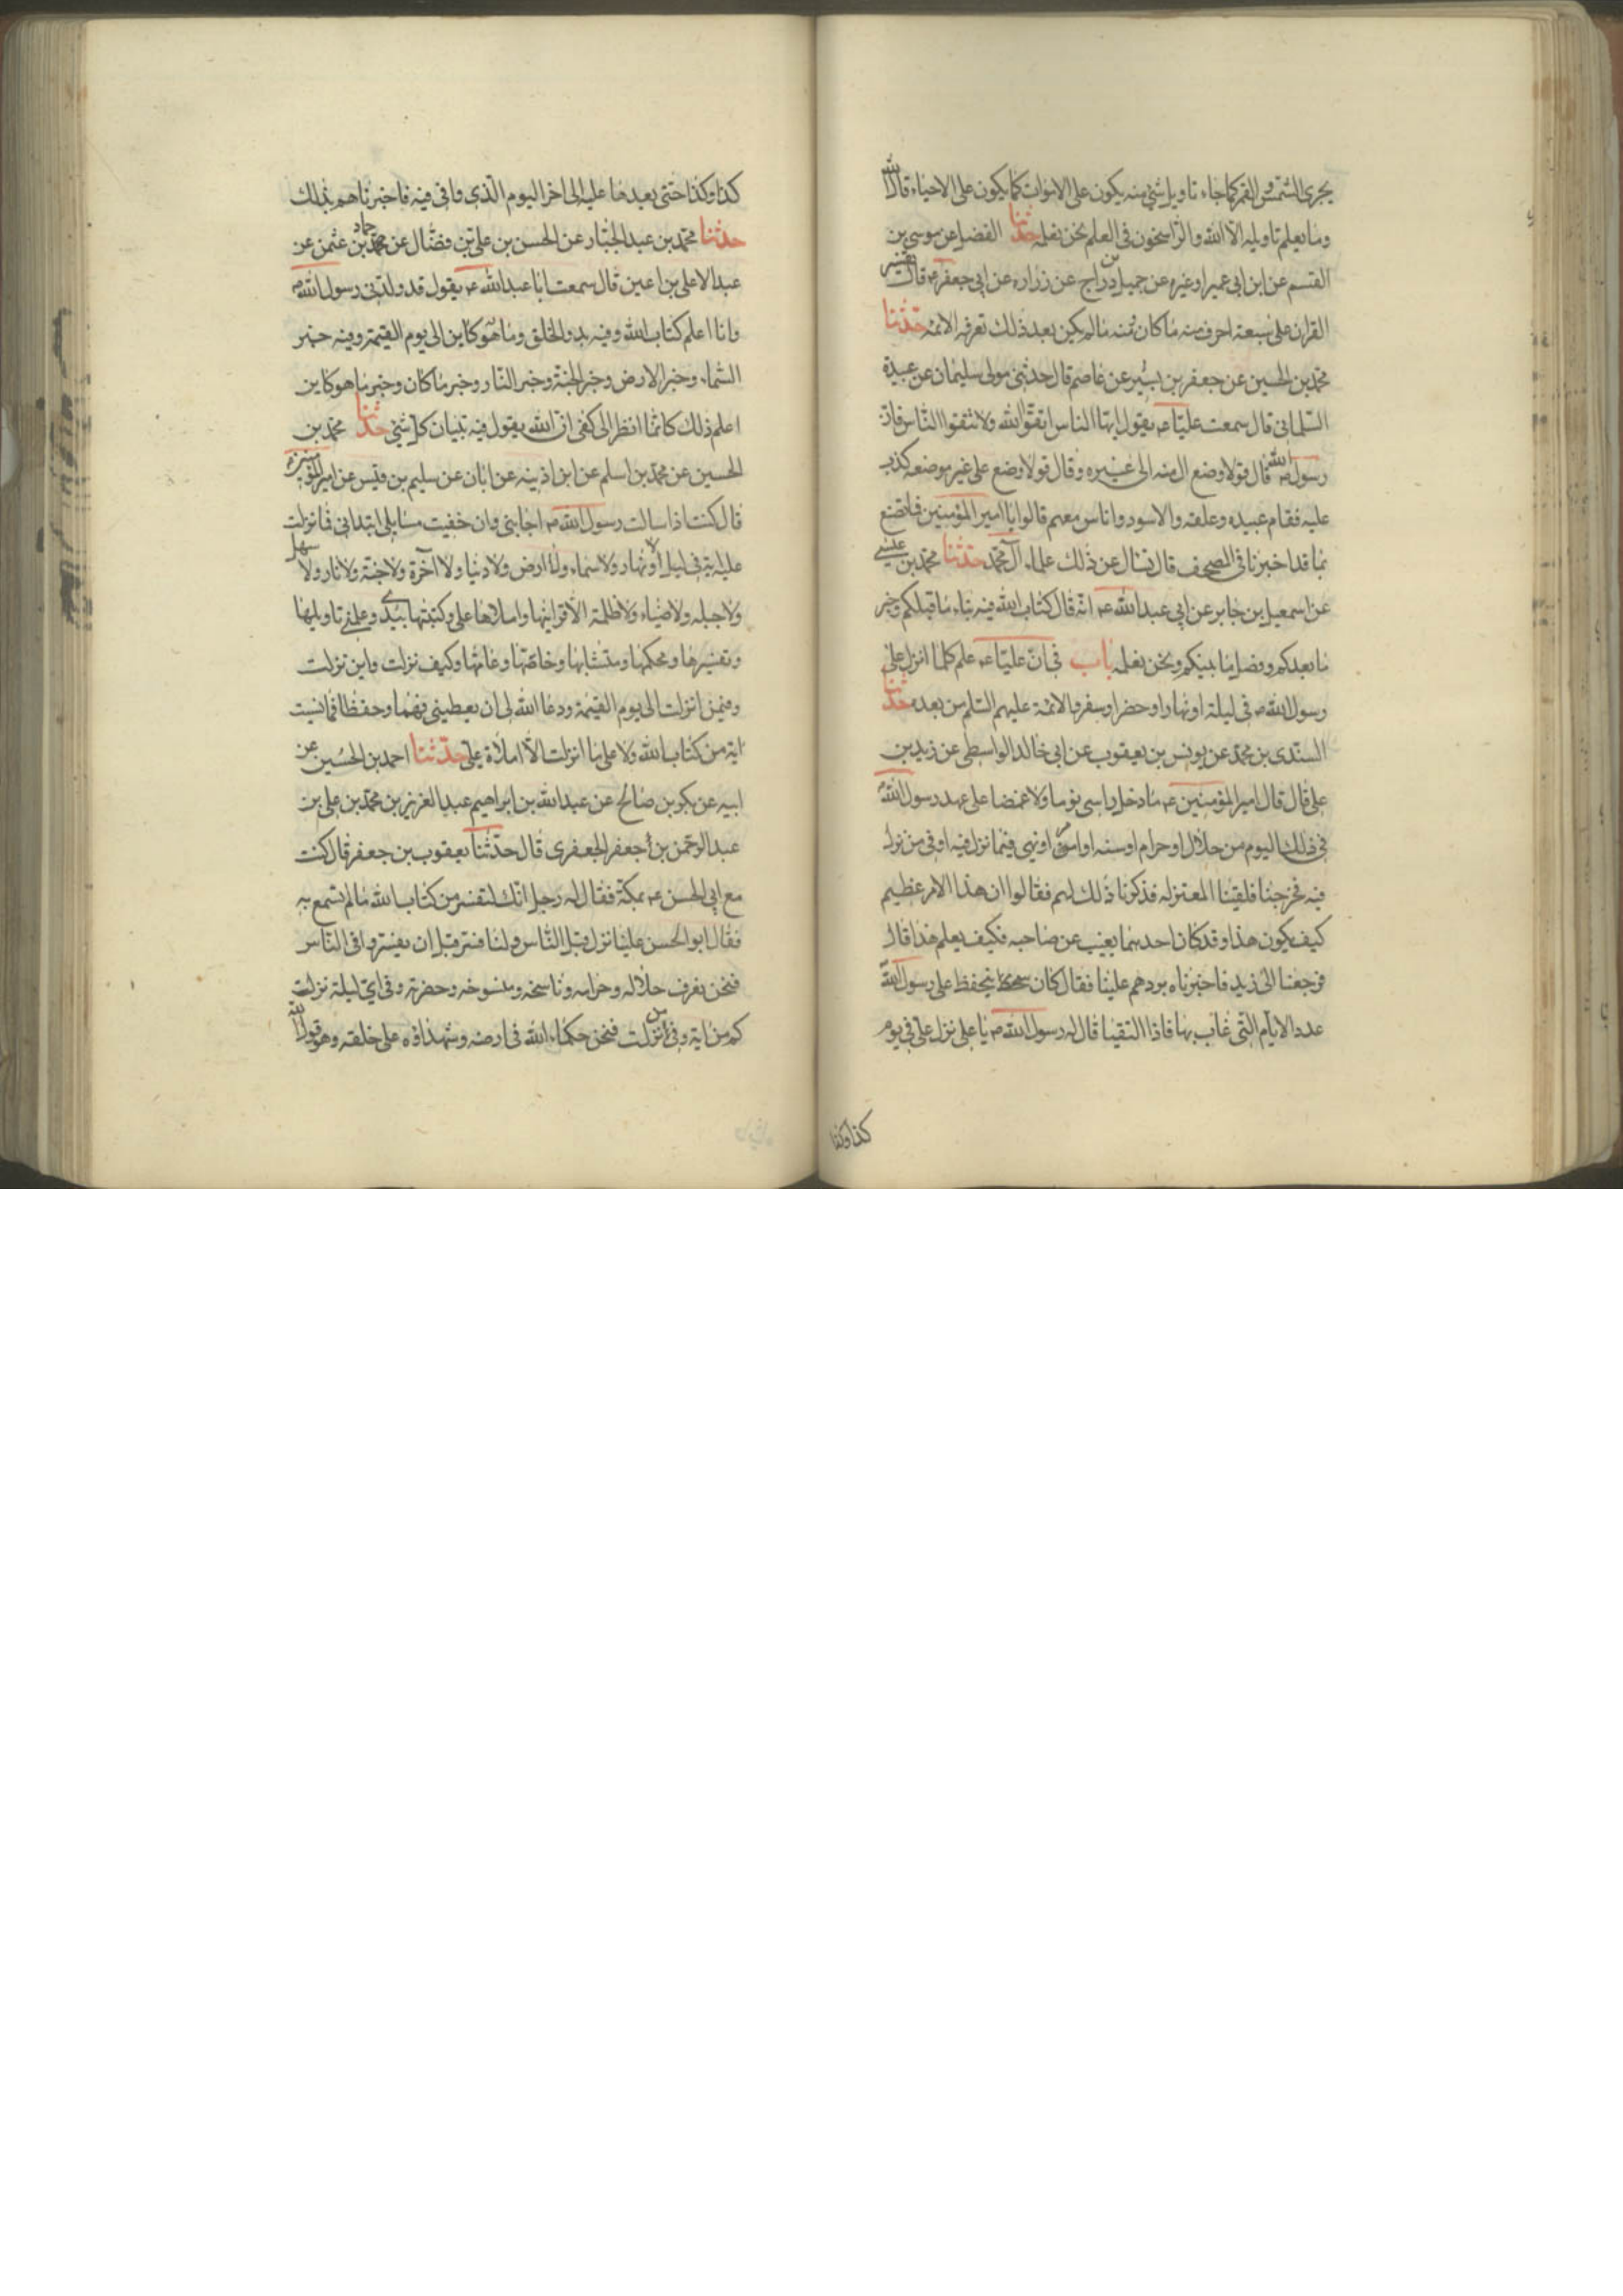 يجرى الشمس والقمر كما جاء تاويل شئ منه يكون على الاموات كما يكون على الاحياء قال الله
وما يعلم تاويله الا الله والراسخون فى العلم نحن نعلمه حدثنا الفضل عن موسى بن
القسم عن ابن ابى عمير او غيره عن جميل بن دراج عن زراره عن ابى جعفر ع قال تفسير
القران على سبعة احرف منه ما كان ومنه ما لم يكن بعد ذلك تعرفه الائمه حدثنا
محمد بن الحسين عن جعفر بن بشير عن عاصم قال حدثنى مولى سليمان عن عبيدة
السلمانى قال سمعت عليا ع يقول ايها الناس اتقوا الله ولا تفتوا الناس فان
رسول الله ص قال قولا وضع ال منه الى غيره وقال قولا وضع على غير موضعه كذب
عليه فقام عبيده وعلقه والاسود واناس معهم قالوا يا امير المؤمنين فما نصنع
بما قد اخبرنا فى المصحف قال تسال عن ذلك علماء آل محمد حدثنا محمد بن عيسى
عن اسمعيل بن جابر عن ابى عبد الله ع انه قال كتاب الله فيه نباء ما قبلكم وخبر
ما بعدكم وفصل ما بينكم ونحن نعلمه باب فى ان عليا ع علم كلما انزل على
رسول الله ص فى ليلة او نهار او حضر او سفر والائمة عليهم السلم من بعده حدثنا
السندى بن محمد عن يونس بن يعقوب عن ابى خالد الواسطى عن زيد بن
على قال قال امير المؤمنين ع ما دخل راسى نوما ولا غمضا على عهد رسول الله
فى ذلك اليوم من حلال او حرام او سنه او امر او نهى فيما نزل فيه او فى من نزل
فيه فخرجنا فلقينا المعتزله فذكرنا ذلك لهم فقالوا ان هذا الامر عظيم
كيف يكون هذا وقد كان احدهما يغيب عن صاحبه فكيف يعلم هذا قال
فرجعنا الى زيد فاخبرناه بردهم علينا فقال كان يتحفظ على رسول الله
عدد الايام التى غاب بها فاذا التقيا قال له رسول الله ص يا على نزل على فى يوم
كذا وكذا
كذا وكذا حتى يعيدها عليه الى اخر اليوم الذى وافى فيه فاخبرناهم بذلك
حدثنا محمد بن عبد الجبار عن الحسن بن على بن فضال عن حماد بن عثمن عن
عبد الاعلى بن اعين قال سمعت ابا عبد الله ع يقول قد ولدنى رسول الله ص
وانا اعلم كتاب الله وفيه بدو الخلق وما هو كاين الى يوم القيمة وفيه خبر
السماء وخبر الارض وخبر الجنة وخبر النار وخبر ما كان وخبر ما هو كاين
اعلم ذلك كانما انظر الى كفى ان الله يقول فيه تبيان كل شئ حدثنا محمد بن
الحسين عن محمد بن اسلم عن ابن اذينه عن ابان عن سليم بن قيس عن امير المؤمنين ع
قال كنت اذا سالت رسول الله ص اجابنى وان خفيت مسايلى ابتدانى فما نزلت
عليه اية فى ليل ولا نهار ولا سماء ولا ارض ولا دنيا ولا آخرة ولا جنة ولا نار ولا سهل
ولا جبل ولا ضياء ولا ظلمة الا اقرانيها واملاها على وكتبتها بيدى وعلمنى تاويلها
وتفسيرها ومحكمها ومتشابها وخاصها وعامها وكيف نزلت واين نزلت
وفيمن انزلت الى يوم القيمة ودعا الله لى ان يعطينى فهما وحفظا فما نسيت
اية من كتاب الله ولا على ما انزلت الا املاة على حدثنا احمد بن الحسين عن
ابيه عن بكر بن صالح عن عبد الله بن ابراهيم عبد العزيز بن محمد بن على بن
عبد الرحمن بن جعفر الجعفرى قال حدثنا يعقوب بن جعفر قال كنت
مع ابى الحسن ع بمكة فقال له رجل انك لتفسر من كتاب الله ما لم تسمع به
فقال ابو الحسن علينا نزل قبل الناس ولنا فسر قبل ان يفسر فى الناس
فنحن نعرف حلاله وحرامه وناسخه ومنسوخه وحضرته وفى اى ليلة نزلت
كم من اية وفى من نزلت فنحن حكماء الله فى ارضه وشهداؤه على خلقه وهو قول الله